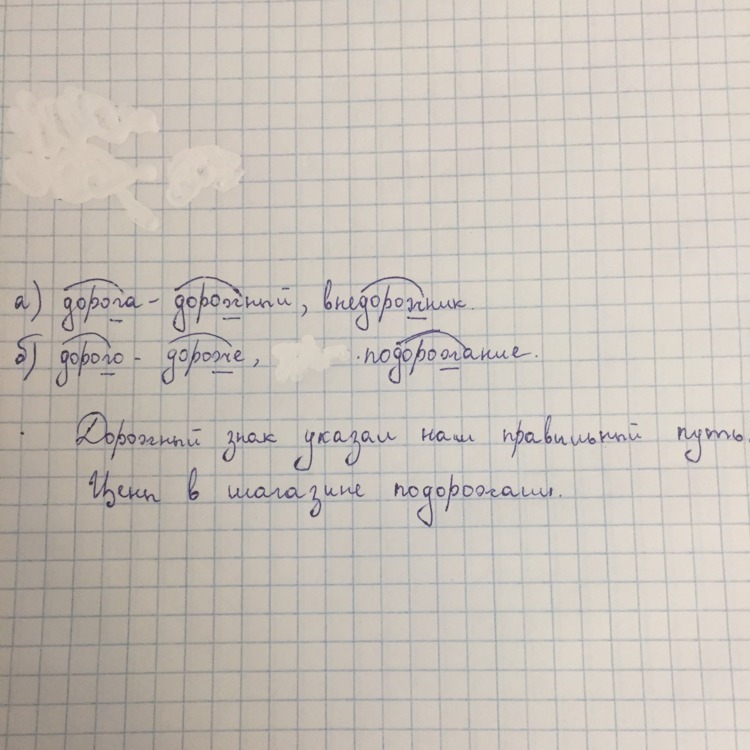 а) дорога - дорожный, внедорожник.
б) дорого - дороже, подорожание.
Дорожный знак указал нам правильный путь.
Цены в магазине подорожали.